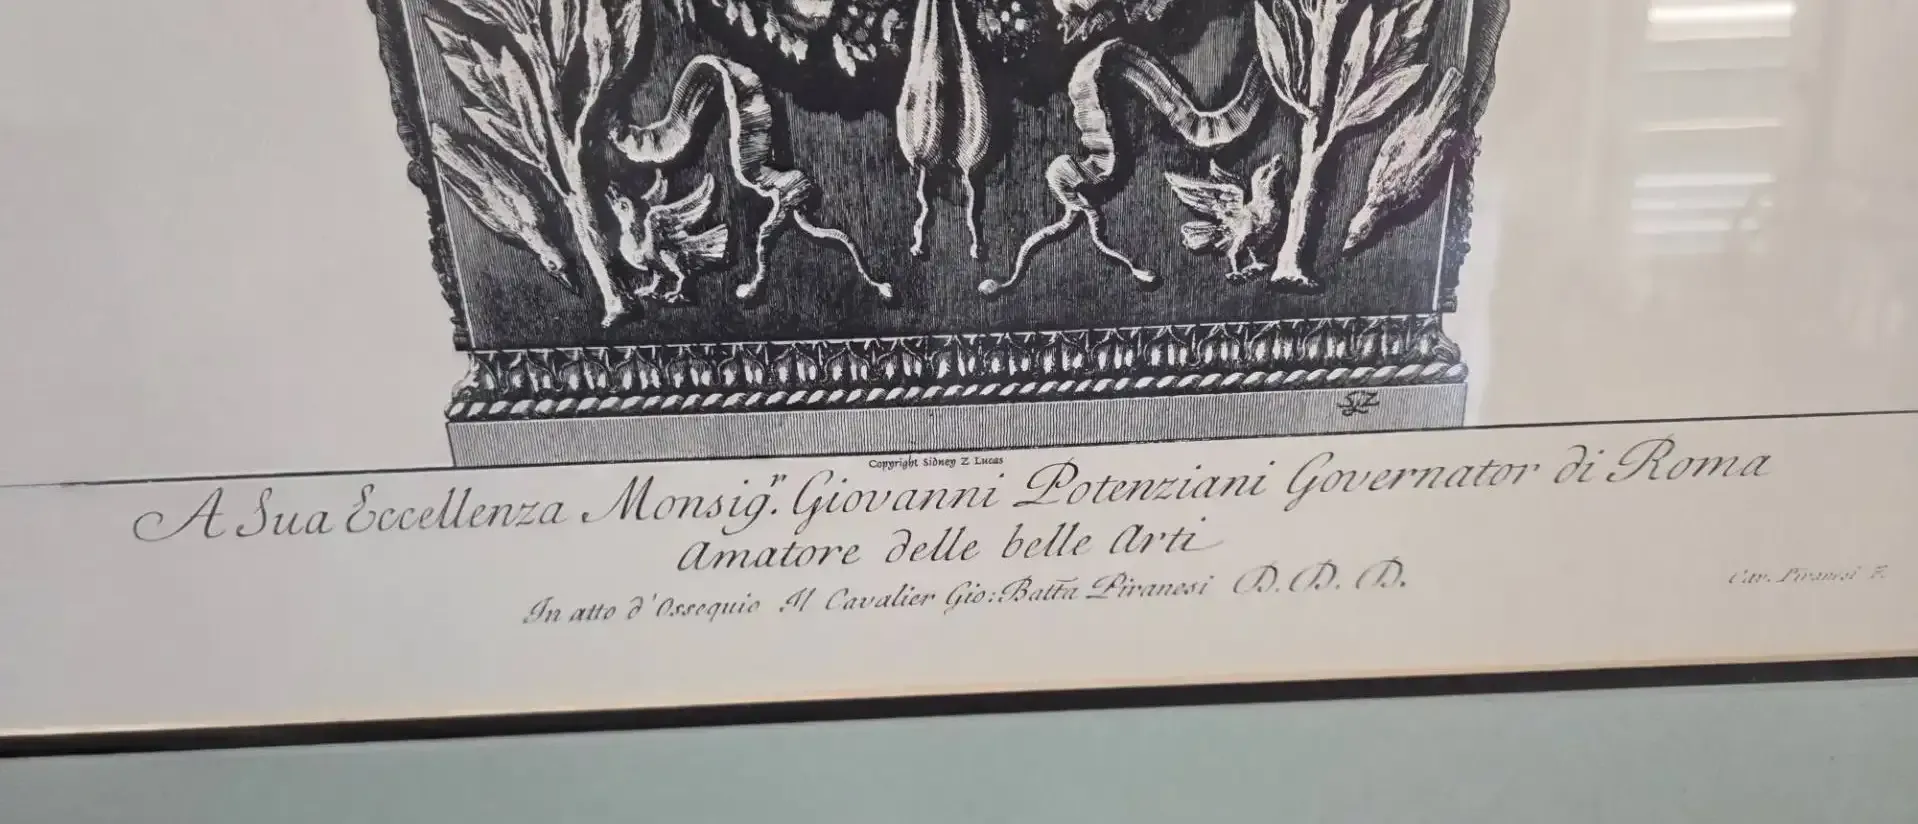 SLZ
Copyright Sidney Z Lucas
A Sua Eccellenza Monsigᵣⁿ. Giovanni Potenziani Governator di Roma
Amatore delle belle Arti
In atto d'Ossequio Il Cavalier Gio: Batta Piranesi D. D. D.
Cav. Piranesi F.